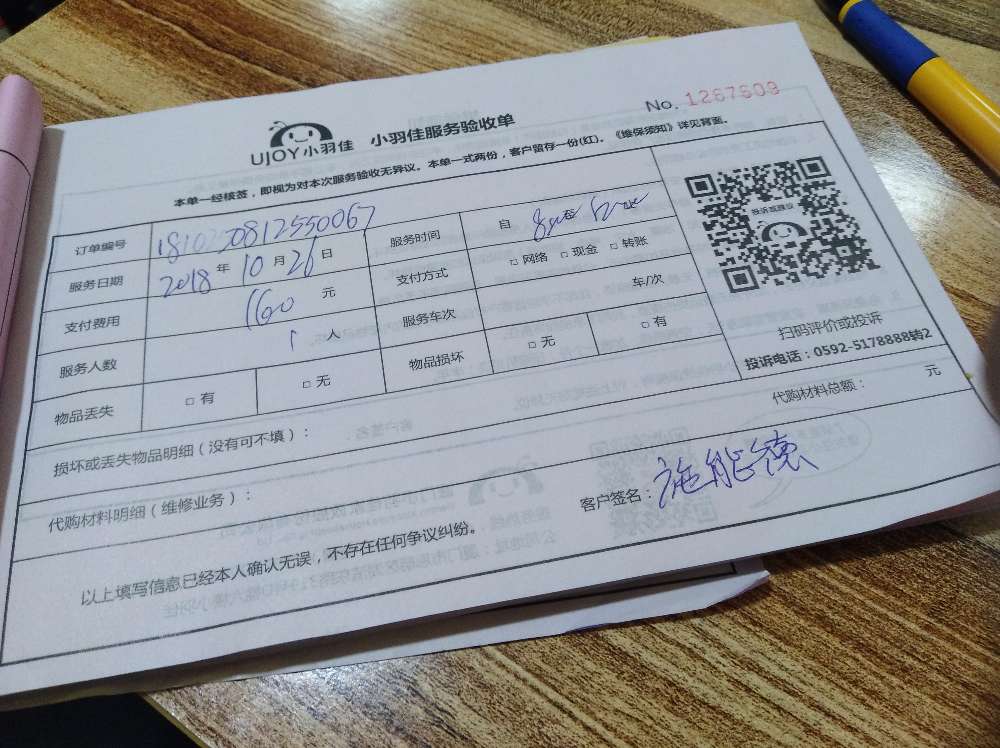 No. 1267609
UJOY小羽佳 小羽佳服务验收单
本单一经核签，即视为对本次服务验收无异议。本单一式两份，客户留存一份(红)。《维保须知》详见背面。
订单编号 1810250812550067 服务时间 自
服务日期 2018 年 10 月 26 日 支付方式 □ 网络 □ 现金 □ 转账
支付费用 160 元 服务车次 车/次
服务人数 1 人 物品损坏 □ 无 □ 有
物品丢失 □ 有 □ 无
投诉或建议
扫码评价或投诉
投诉电话：0592-5178888转2
损坏或丢失物品明细（没有可不填）：
代购材料总额： 元
代购材料明细（维修业务）：
客户签名：施能德
以上填写信息已经本人确认无误，不存在任何争议纠纷。